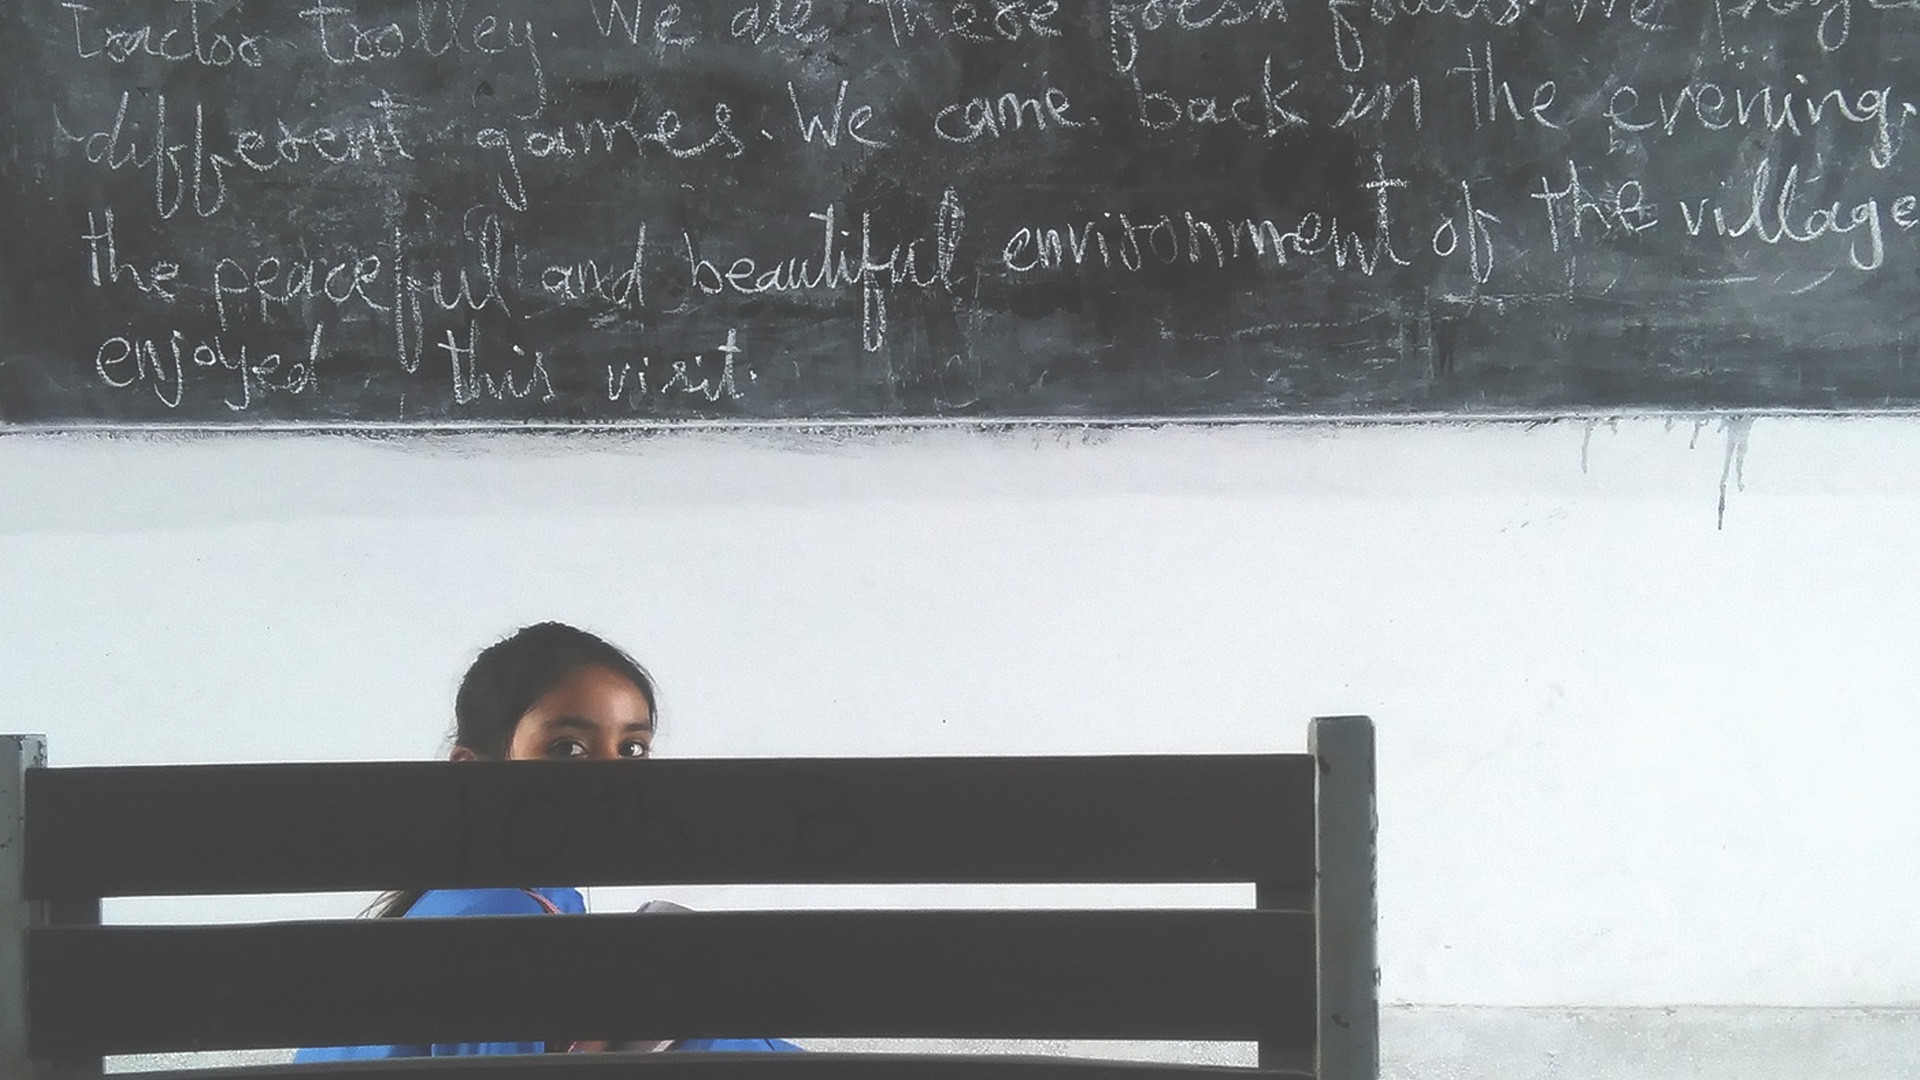 Tractor trolley. We ate there fresh fruits. We play
different games. We came back in the evening.
the peaceful and beautiful environment of the village
enjoyed this visit.
10th B